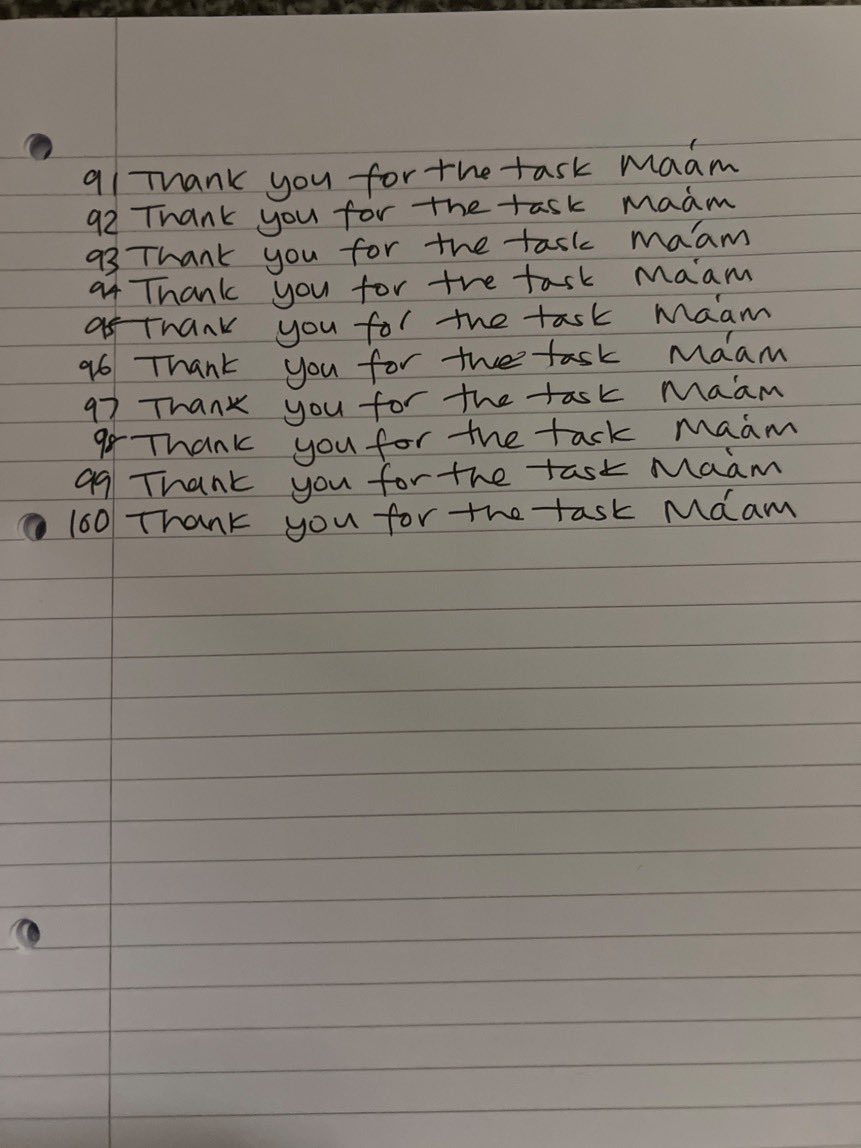 91 Thank you for the task Ma'am
92 Thank you for the task Ma'am
93 Thank you for the task Ma'am
94 Thank you for the task Ma'am
95 Thank you for the task Ma'am
96 Thank you for the task Ma'am
97 Thank you for the task Ma'am
98 Thank you for the task Ma'am
99 Thank you for the task Ma'am
100 Thank you for the task Ma'am